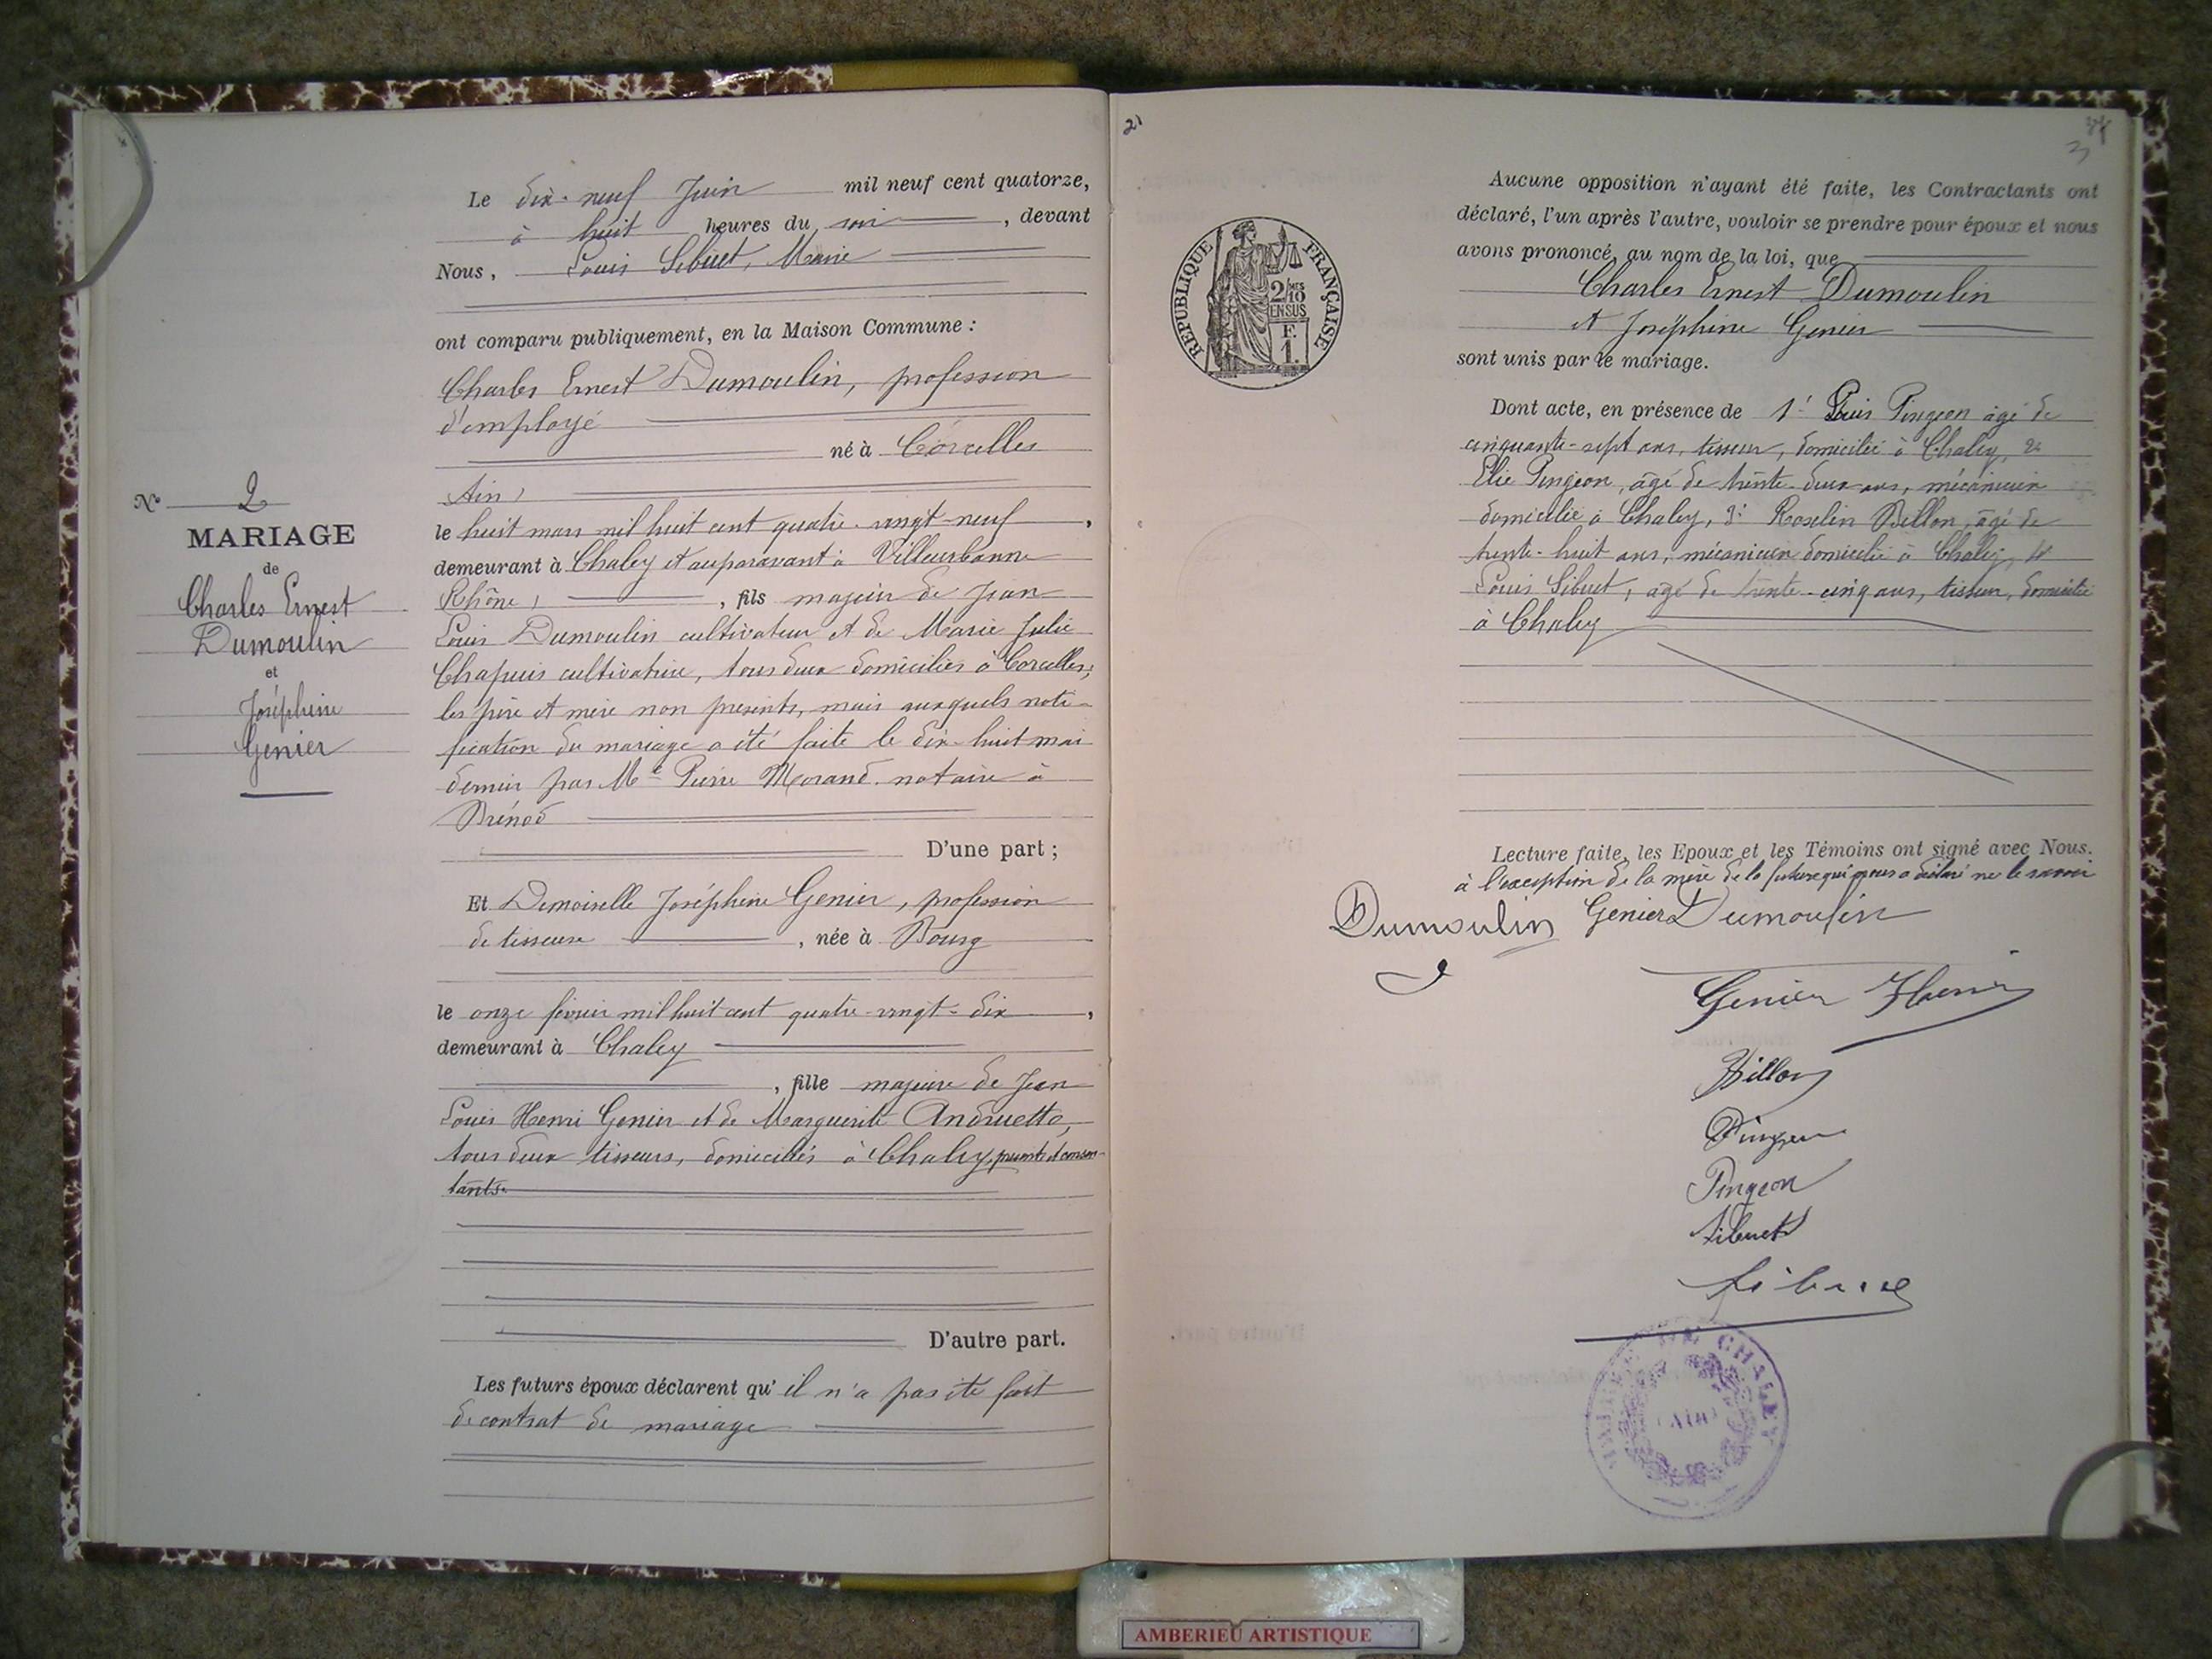 Le dix-neuf Juin mil neuf cent quatorze,
à huit heures du soir, devant
Nous, Louis Sibuet, Maire
ont comparu publiquement, en la Maison Commune :
Charles Ernest Dumoulin, profession
d'employé
né à Corcelles
Ain,
le huit mars mil huit cent quatre-vingt-neuf,
demeurant à Chaley et auparavant à Villeurbanne
Rhône, fils majeur de Jean
Louis Dumoulin cultivateur et de Marie Julie
Chapuis cultivatrice, tous deux domiciliés à Corcelles;
les père et mère non présents, mais auxquels noti-
fication du mariage a été faite le dix-huit mai
dernier par Me Pierre Morand notaire à
Brénod
D'une part ;
N° 2
MARIAGE
de
Charles Ernest
Dumoulin
et
Joséphine
Genier
Et Demoiselle Joséphine Genier, profession
de tisseuse, née à Bourg
le onze février mil huit cent quatre-vingt-dix,
demeurant à Chaley
, fille majeure de Jean
Louis Henri Genier et de Marguerite Andruetto,
tous deux tisseurs, domiciliés à Chaley, présents et consen-
tants.
D'autre part.
Les futurs époux déclarent qu'il n'a pas été fait
de contrat de mariage
21
3
RÉPUBLIQUE FRANÇAISE
2/10MES
EN SUS
F.
1.
Aucune opposition n'ayant été faite, les Contractants ont
déclaré, l'un après l'autre, vouloir se prendre pour époux et nous
avons prononcé, au nom de la loi, que
Charles Ernest Dumoulin
et Joséphine Genier
sont unis par le mariage.
Dont acte, en présence de 1° Louis Pingeon âgé de
cinquante-sept ans, tisseur, domicilié à Chaley, 2°
Elie Pingeon, âgé de trente-deux ans, mécanicien
domicilié à Chaley, 3° Roselin Billon, âgé de
trente-huit ans, mécanicien domicilié à Chaley, 4°
Louis Sibuet, âgé de trente-cinq ans, tisseur, domicilié
à Chaley
Lecture faite, les Epoux et les Témoins ont signé avec Nous.
à l'exception de la mère de la future qui nous a déclaré ne le savoir
Dumoulin Genier Dumoulin
Genier Henri
Billon
Pingeon
Pingeon
Sibuet
Sibuet
MAIRIE DE CHALEY
(AIN)
D'autre part.
AMBERIEU ARTISTIQUE